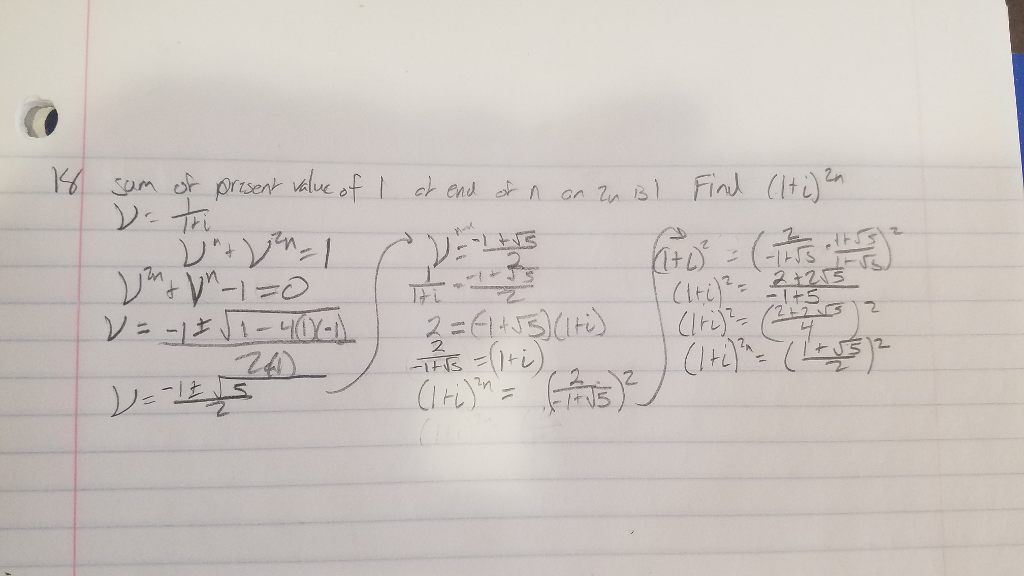 18 sum of present value of 1 at end of n an 2n is 1 Find (1+i)^2n
V = 1/1+i
V^n + V^2n = 1
V^2n + V^n - 1 = 0
V = -1 ± √1 - 4(1)(-1) / 2(1)
V = -1 ± √5 / 2
V = -1 + √5 / 2
1/1+i = -1 + √5 / 2
2 = (-1+√5)(1+i)
2/-1+√5 = (1+i)
(1+i)^2n = (2/-1+√5)^2
(1+i)^2 = (2/-1+√5 · 1+√5/1+√5)^2
(1+i)^2 = 2+2√5/-1+5
(1+i)^2 = (2+2√5/4)^2
(1+i)^2n = (1+√5/2)^2